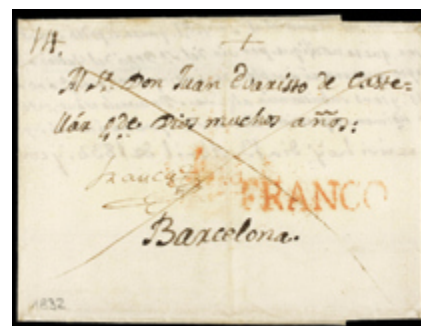 Al Sr. Don Juan Evaristo de Caste=
llár q.de Dios muchos años:
franca
FRANCO
Barcelona.
1832